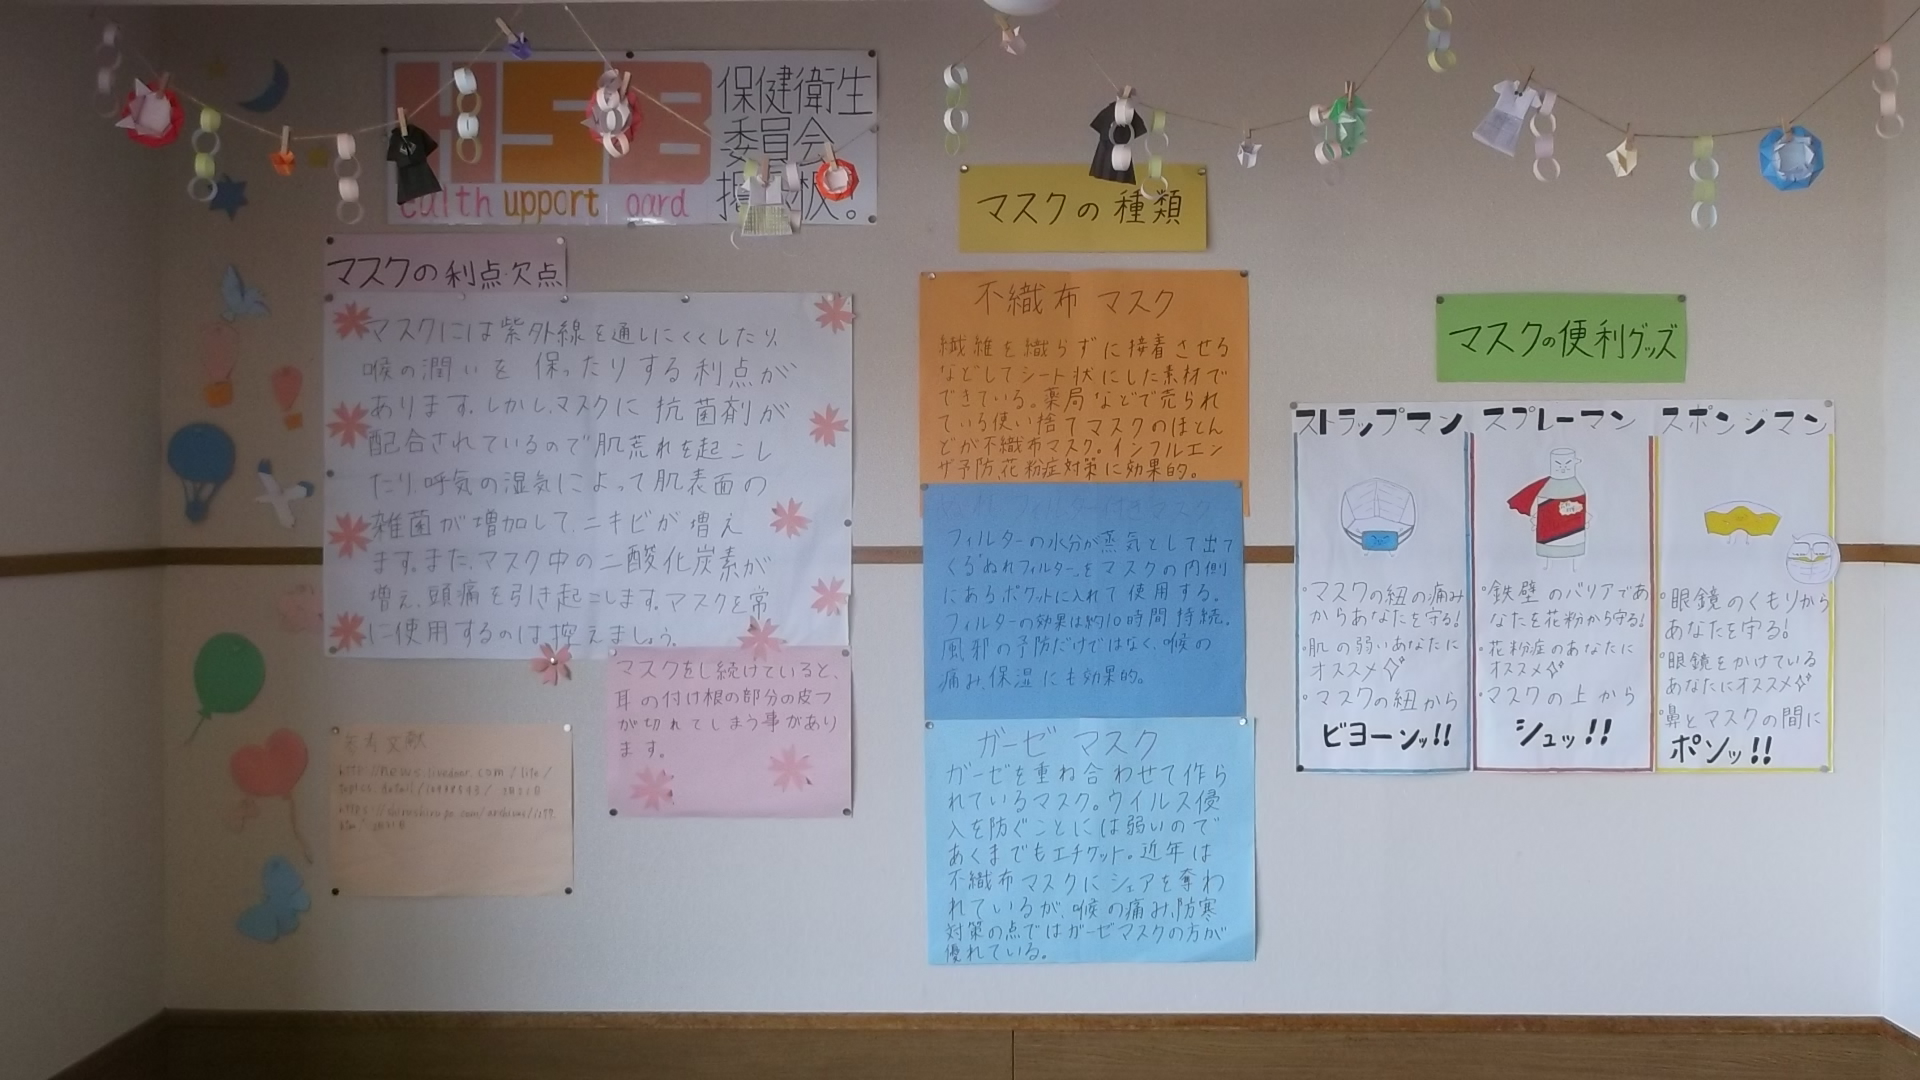 HSB
ealth upport oard
保健衛生
委員会
掲 板。
マスクの利点・欠点
マスクには紫外線を通しにくくしたり、
喉の潤いを保ったりする利点が
あります。しかし、マスクに抗菌剤が
配合されているので肌荒れを起こし
たり、呼気の湿気によって肌表面の
雑菌が増加して、ニキビが増え
ます。また、マスク中の二酸化炭素が
増え、頭痛を引き起こします。マスクを常
に使用するのは控えましょう。
マスクをし続けていると、
耳の付け根の部分の皮フ
が切れてしまう事があり
ます。
参考文献
マスクの種類
不織布マスク
繊維を織らずに接着させる
などしてシート状にした素材で
できている。薬局などで売られ
ている使い捨てマスクのほとん
どが不織布マスク。インフルエン
ザ予防、花粉症対策に効果的。
フィルター付きマスク
フィルターの水分が蒸気として出て
くる"ぬれフィルター"をマスクの内側
にあるポケットに入れて使用する。
フィルターの効果は約10時間持続。
風邪の予防だけではなく、喉の
痛み、保湿にも効果的。
ガーゼマスク
ガーゼを重ね合わせて作ら
れているマスク。ウイルス侵
入を防ぐことには弱いので
あくまでもエチケット。近年は
不織布マスクにシェアを奪わ
れているが、喉の痛み、防寒
対策の点ではガーゼマスクの方が
優れている。
マスクの便利グッズ
ストラップマン
・マスクの紐の痛み
からあなたを守る!
・肌の弱いあなたに
オススメ
・マスクの紐から
ビヨーンッ!!
スプレーマン
・鉄壁のバリアであ
なたを花粉から守る!
・花粉症のあなたに
オススメ
・マスクの上から
シュッ!!
スポンジマン
・眼鏡のくもりから
あなたを守る!
・眼鏡をかけている
あなたにオススメ
・鼻とマスクの間に
ポンッ!!